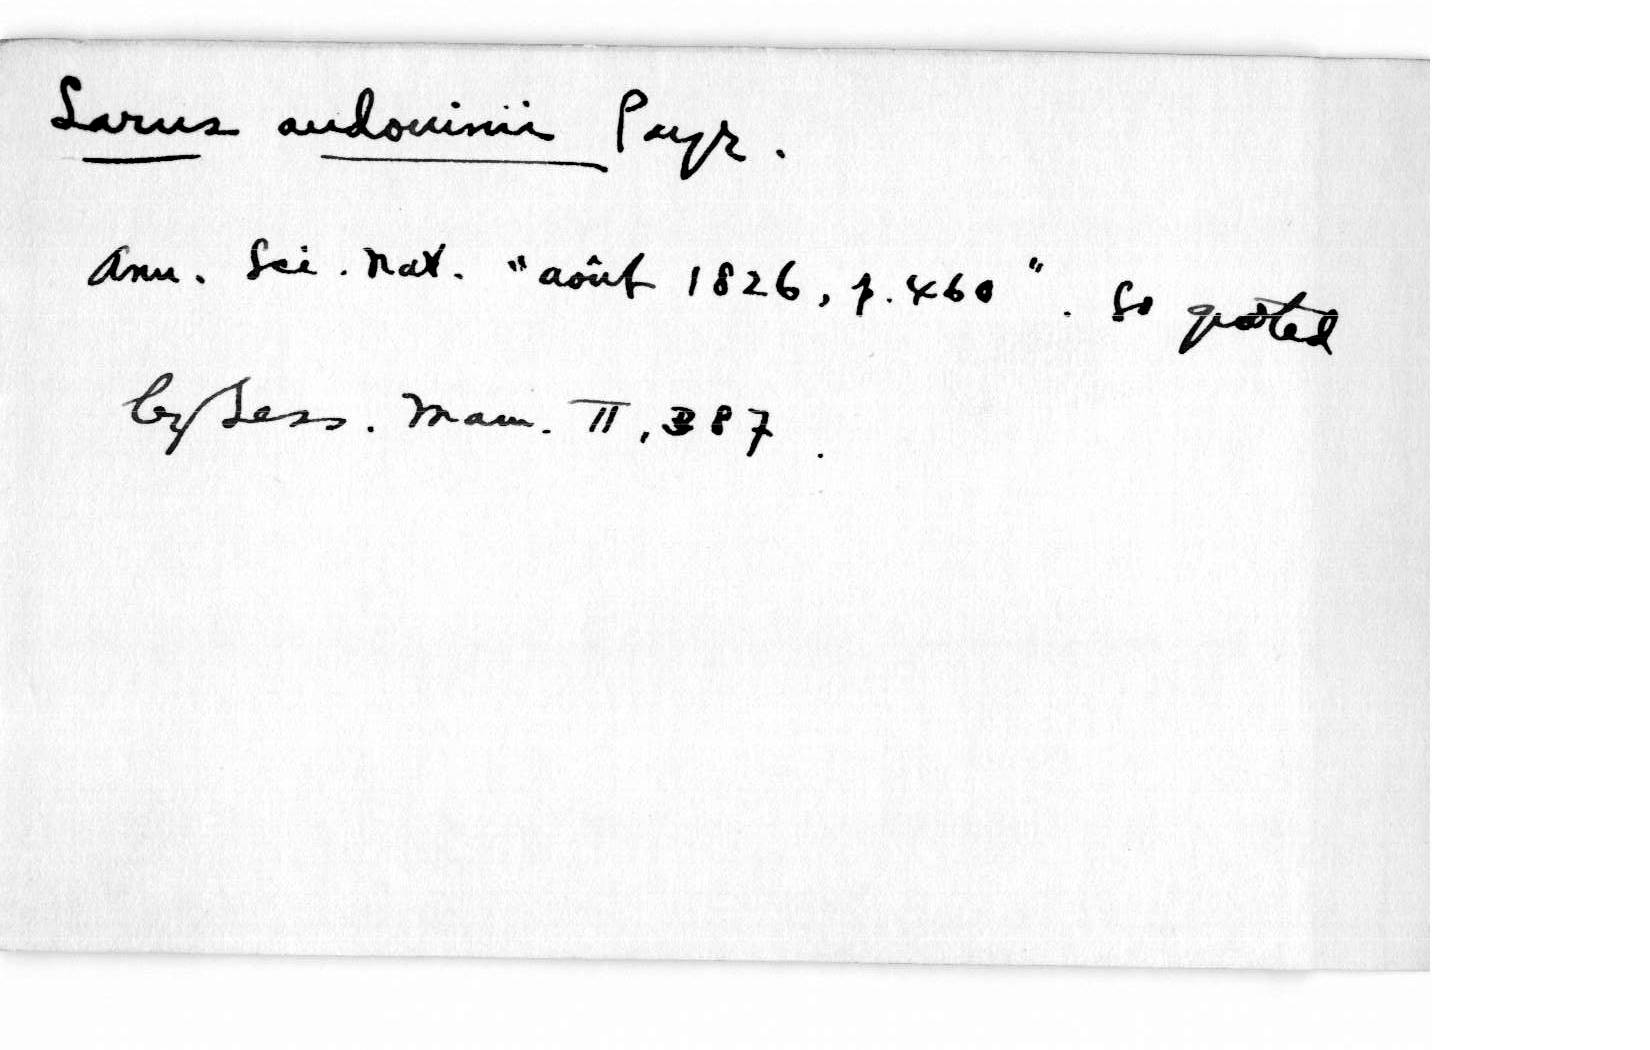 Larus audouinii Payr.
Ann. Sci. Nat. "août 1826, p. 460". So quoted
by Less. Man. II, 387.